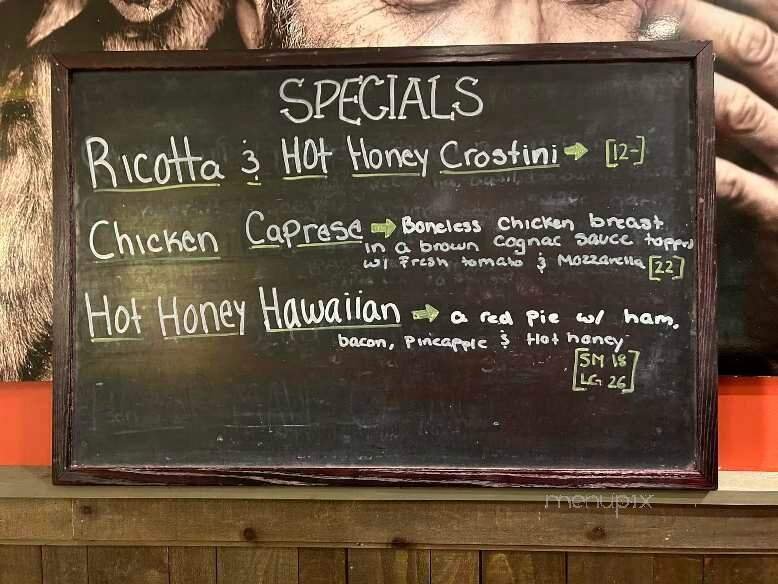 SPECIALS
Ricotta & Hot Honey Crostini → [12-]
Chicken Caprese → Boneless chicken breast
in a brown cognac sauce topped
w/ Fresh tomato & Mozzarella [22]
Hot Honey Hawaiian → a red pie w/ ham,
bacon, pineapple & Hot honey
[SM 18
LG 26]
menupix